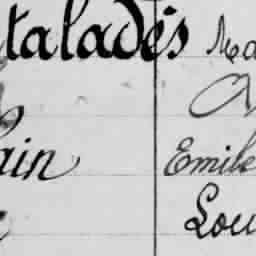 taladés Ma
ain Emile
Lou